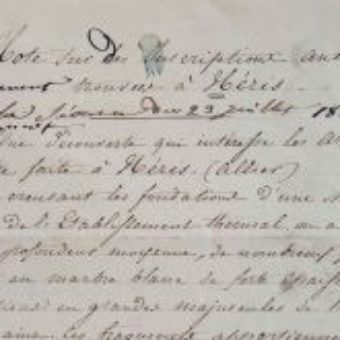 Note sur des Inscriptions
trouvées à Néris.
la Séance du 23 juillet 18
une découverte qui intéresse les
faite à Néris. (Allier)
creusant les fondations d'une
de l'Etablissement thermal, on a
profondeur moyenne, de nombreux
en marbre blanc de forte
en grandes majuscules de
les fragments